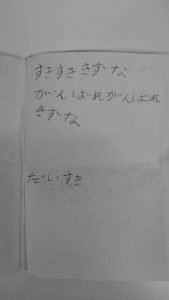 すきすききずな
がんばれがんばれ
きずな
だいすき